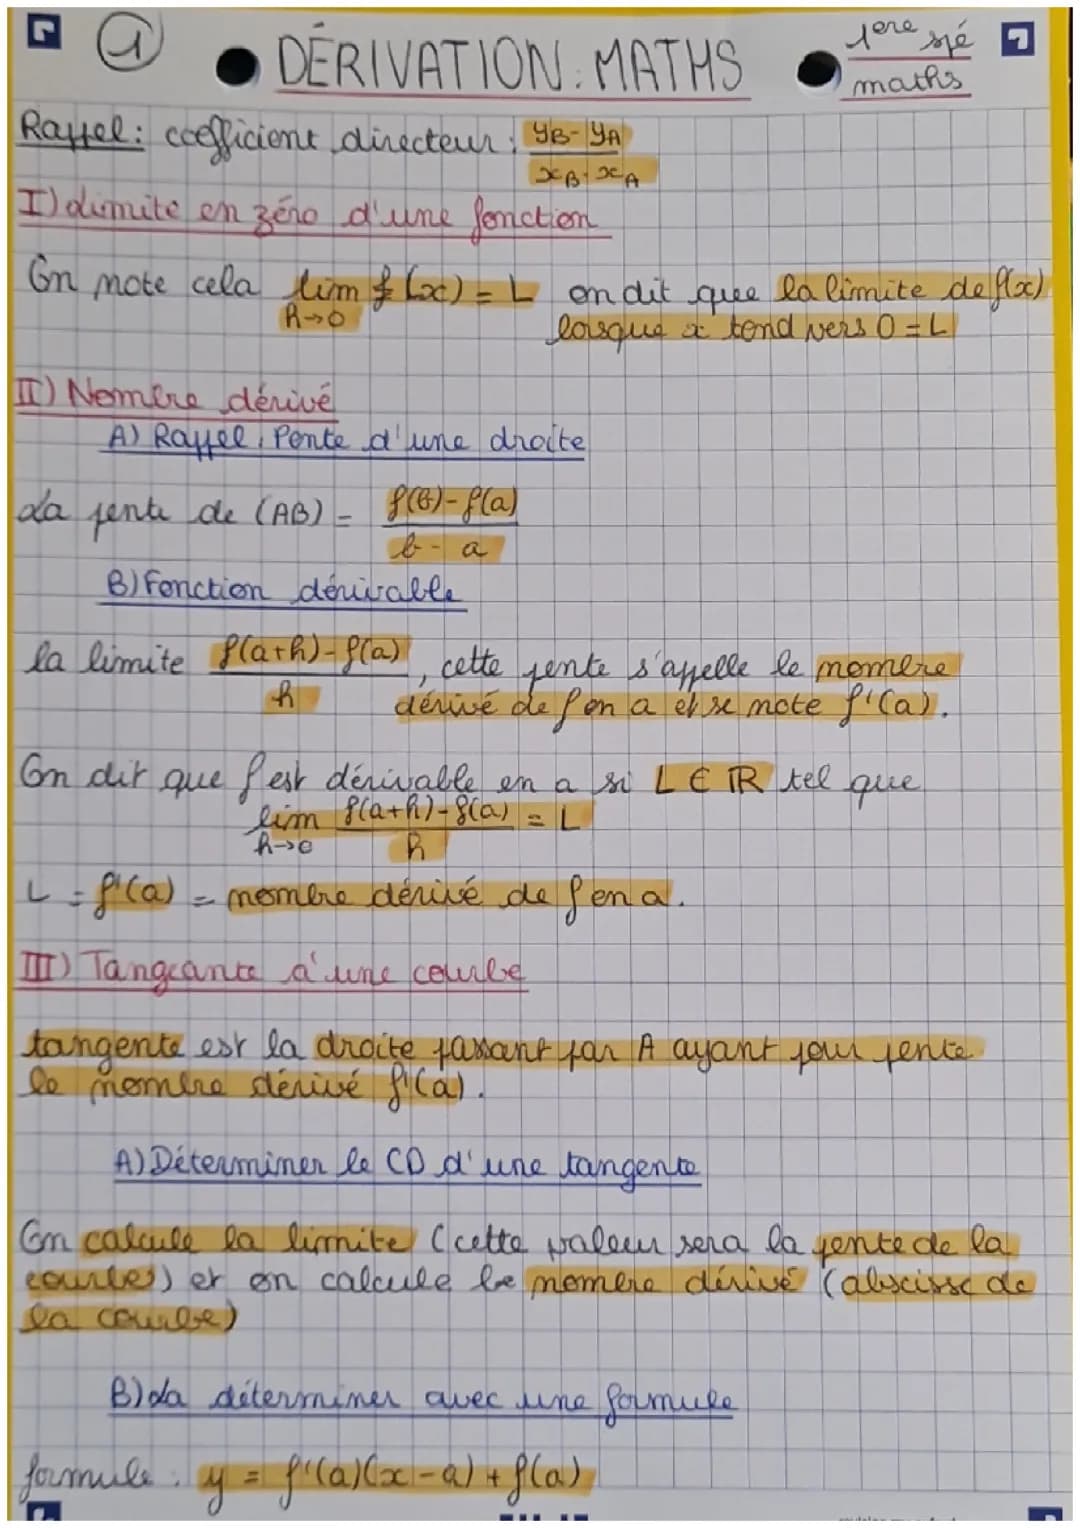 1
DÉRIVATION : MATHS
1ere spé
maths
Rappel : coefficient directeur : yB - yA / xB - xA
I) Limite en zéro d'une fonction
On note cela lim f(x) = L on dit que la limite de f(x)
h→0 lorsque x tend vers 0 = L
II) Nombre dérivé
A) Rappel : Pente d'une droite
La pente de (AB) = f(b) - f(a) / b - a
B) Fonction dérivable
la limite f(a+h) - f(a) / h , cette pente s'appelle le nombre
dérivé de f en a et se note f'(a).
On dit que f est dérivable en a si L ∈ ℝ tel que
lim f(a+h) - f(a) / h = L
h→0
L = f'(a) = nombre dérivé de f en a.
III) Tangeante à une courbe
tangente est la droite passant par A ayant pour pente
le nombre dérivé f'(a).
A) Déterminer le CD d'une tangente
On calcule la limite (cette valeur sera la pente de la
courbe) et on calcule le nombre dérivé (abscisse de
la courbe)
B) La déterminer avec une formule
formule : y = f'(a)(x - a) + f(a)